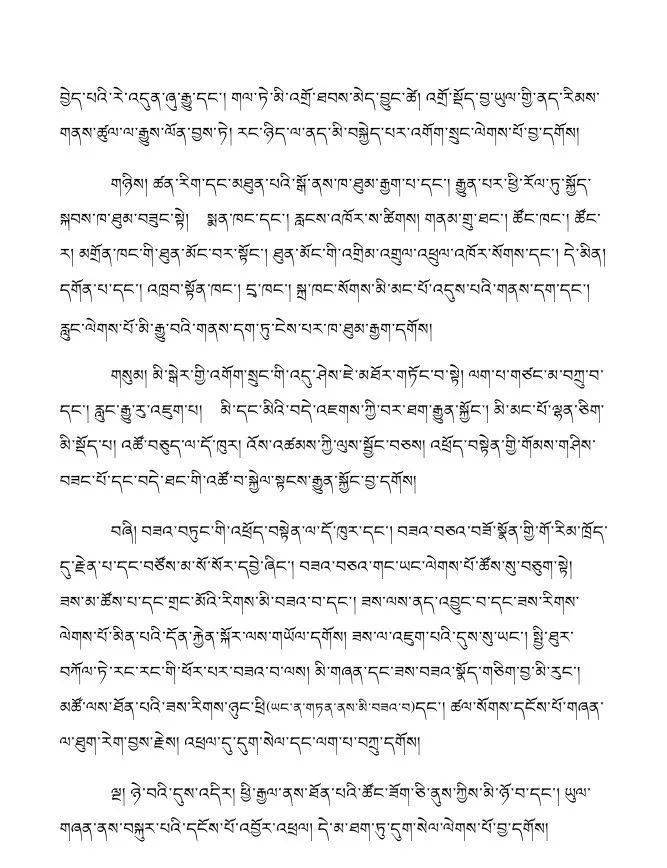 བྱེད་པའི་རེ་འདུན་ཞུ་རྒྱུ་དང་། གལ་ཏེ་མི་འགྲོ་ཐབས་མེད་བྱུང་ཚེ། འགྲོ་སྡོད་བྱ་ཡུལ་གྱི་ནད་རིམས་
གནས་ཚུལ་ལ་རྒྱུས་ལོན་བྱས་ཏེ། རང་ཉིད་ལ་ནད་མི་བསྐྱེད་པར་འགོག་སྲུང་ལེགས་པོ་བྱ་དགོས།
གཉིས། ཚན་རིག་དང་མཐུན་པའི་སྒོ་ནས་ཁ་ཐུམ་རྒྱག་པ་དང་། རྒྱུན་པར་ཕྱི་རོལ་ཏུ་སྐྱོད་
སྐབས་ཁ་ཐུམ་བཟུང་སྟེ། སྨན་ཁང་དང་། རླངས་འཁོར་ས་ཚིགས། གནམ་གྲུ་ཐང་། ཚོང་ཁང་། ཚོང་
ར། མགྲོན་ཁང་གི་ཐུན་མོང་བར་སྟོང་། ཐུན་མོང་གི་འགྲིམ་འགྲུལ་འཕྲུལ་འཁོར་སོགས་དང་། དེ་མིན།
དགོན་པ་དང་། འཁྲབ་སྟོན་ཁང་། དྲ་ཁང་། སྐྲ་ཁང་སོགས་མི་མང་པོ་འདུས་པའི་གནས་དག་དང་།
རླུང་ལེགས་པོ་མི་རྒྱུ་བའི་གནས་དག་ཏུ་ངེས་པར་ཁ་ཐུམ་རྒྱག་དགོས།
གསུམ། མི་སྒེར་གྱི་འགོག་སྲུང་གི་འདུ་ཤེས་ཇེ་མཐོར་གཏོང་བ་སྟེ། ལག་པ་གཙང་མ་བཀྲུ་བ་
དང་། རླུང་རྒྱུ་རུ་འཇུག་པ། མི་དང་མིའི་བདེ་འཇགས་ཀྱི་བར་ཐག་རྒྱུན་སྐྱོང་། མི་མང་པོ་ལྷན་ཅིག་
མི་སྡོད་པ། འཚོ་བཅུད་ལ་དོ་ཁུར། འོས་འཚམས་ཀྱི་ལུས་སྦྱོང་བཅས། འཕྲོད་བསྟེན་གྱི་གོམས་གཤིས་
བཟང་པོ་དང་བདེ་ཐང་གི་འཚོ་བ་སྐྱེལ་སྟངས་རྒྱུན་སྐྱོང་བྱ་དགོས།
བཞི། བཟའ་བཏུང་གི་འཕྲོད་བསྟེན་ལ་དོ་ཁུར་དང་། བཟའ་བཅའ་བཟོ་སྣོན་གྱི་གོ་རིམ་ཁྲོད་
དུ་རྗེན་པ་དང་བཙོས་མ་སོ་སོར་དབྱེ་ཞིང་། བཟའ་བཅའ་གང་ཡང་ལེགས་པོ་ཚོས་སུ་བཅུག་སྟེ།
ཟས་མ་ཚོས་པ་དང་གྲང་མོའི་རིགས་མི་བཟའ་བ་དང་། ཟས་ལས་ནད་འབྱུང་བ་དང་ཟས་རིགས་
ལེགས་པོ་མིན་པའི་དོན་རྐྱེན་སྐོར་ལས་གཡོལ་དགོས། ཟས་ལ་འཇུག་པའི་དུས་སུ་ཡང་། སྤྱི་ཐུར་
བཀོལ་ཏེ་རང་རང་གི་ཕོར་པར་བཟའ་བ་ལས། མི་གཞན་དང་ཟས་བཟའ་སྣོད་གཅིག་བྱ་མི་རུང་།
མཚོ་ལས་ཐོན་པའི་ཟས་རིགས་ཉུང་ཕྲི(ཡང་ན་གཏན་ནས་མི་བཟའ་བ)དང་། ཚལ་སོགས་དངོས་པོ་གཞན་
ལ་ཐུག་རེག་བྱས་རྗེས། འཕྲལ་དུ་དུག་སེལ་དང་ལག་པ་བཀྲུ་དགོས།
ལྔ། ཉེ་བའི་དུས་འདིར། ཕྱི་རྒྱལ་ནས་ཐོན་པའི་ཚོང་ཟོག་ཅི་ནུས་ཀྱིས་མི་ཉོ་བ་དང་། ཡུལ་
གཞན་ནས་བསྐུར་པའི་དངོས་པོ་འབྱོར་འཕྲལ། དེ་མ་ཐག་ཏུ་དུག་སེལ་ལེགས་པོ་བྱ་དགོས།